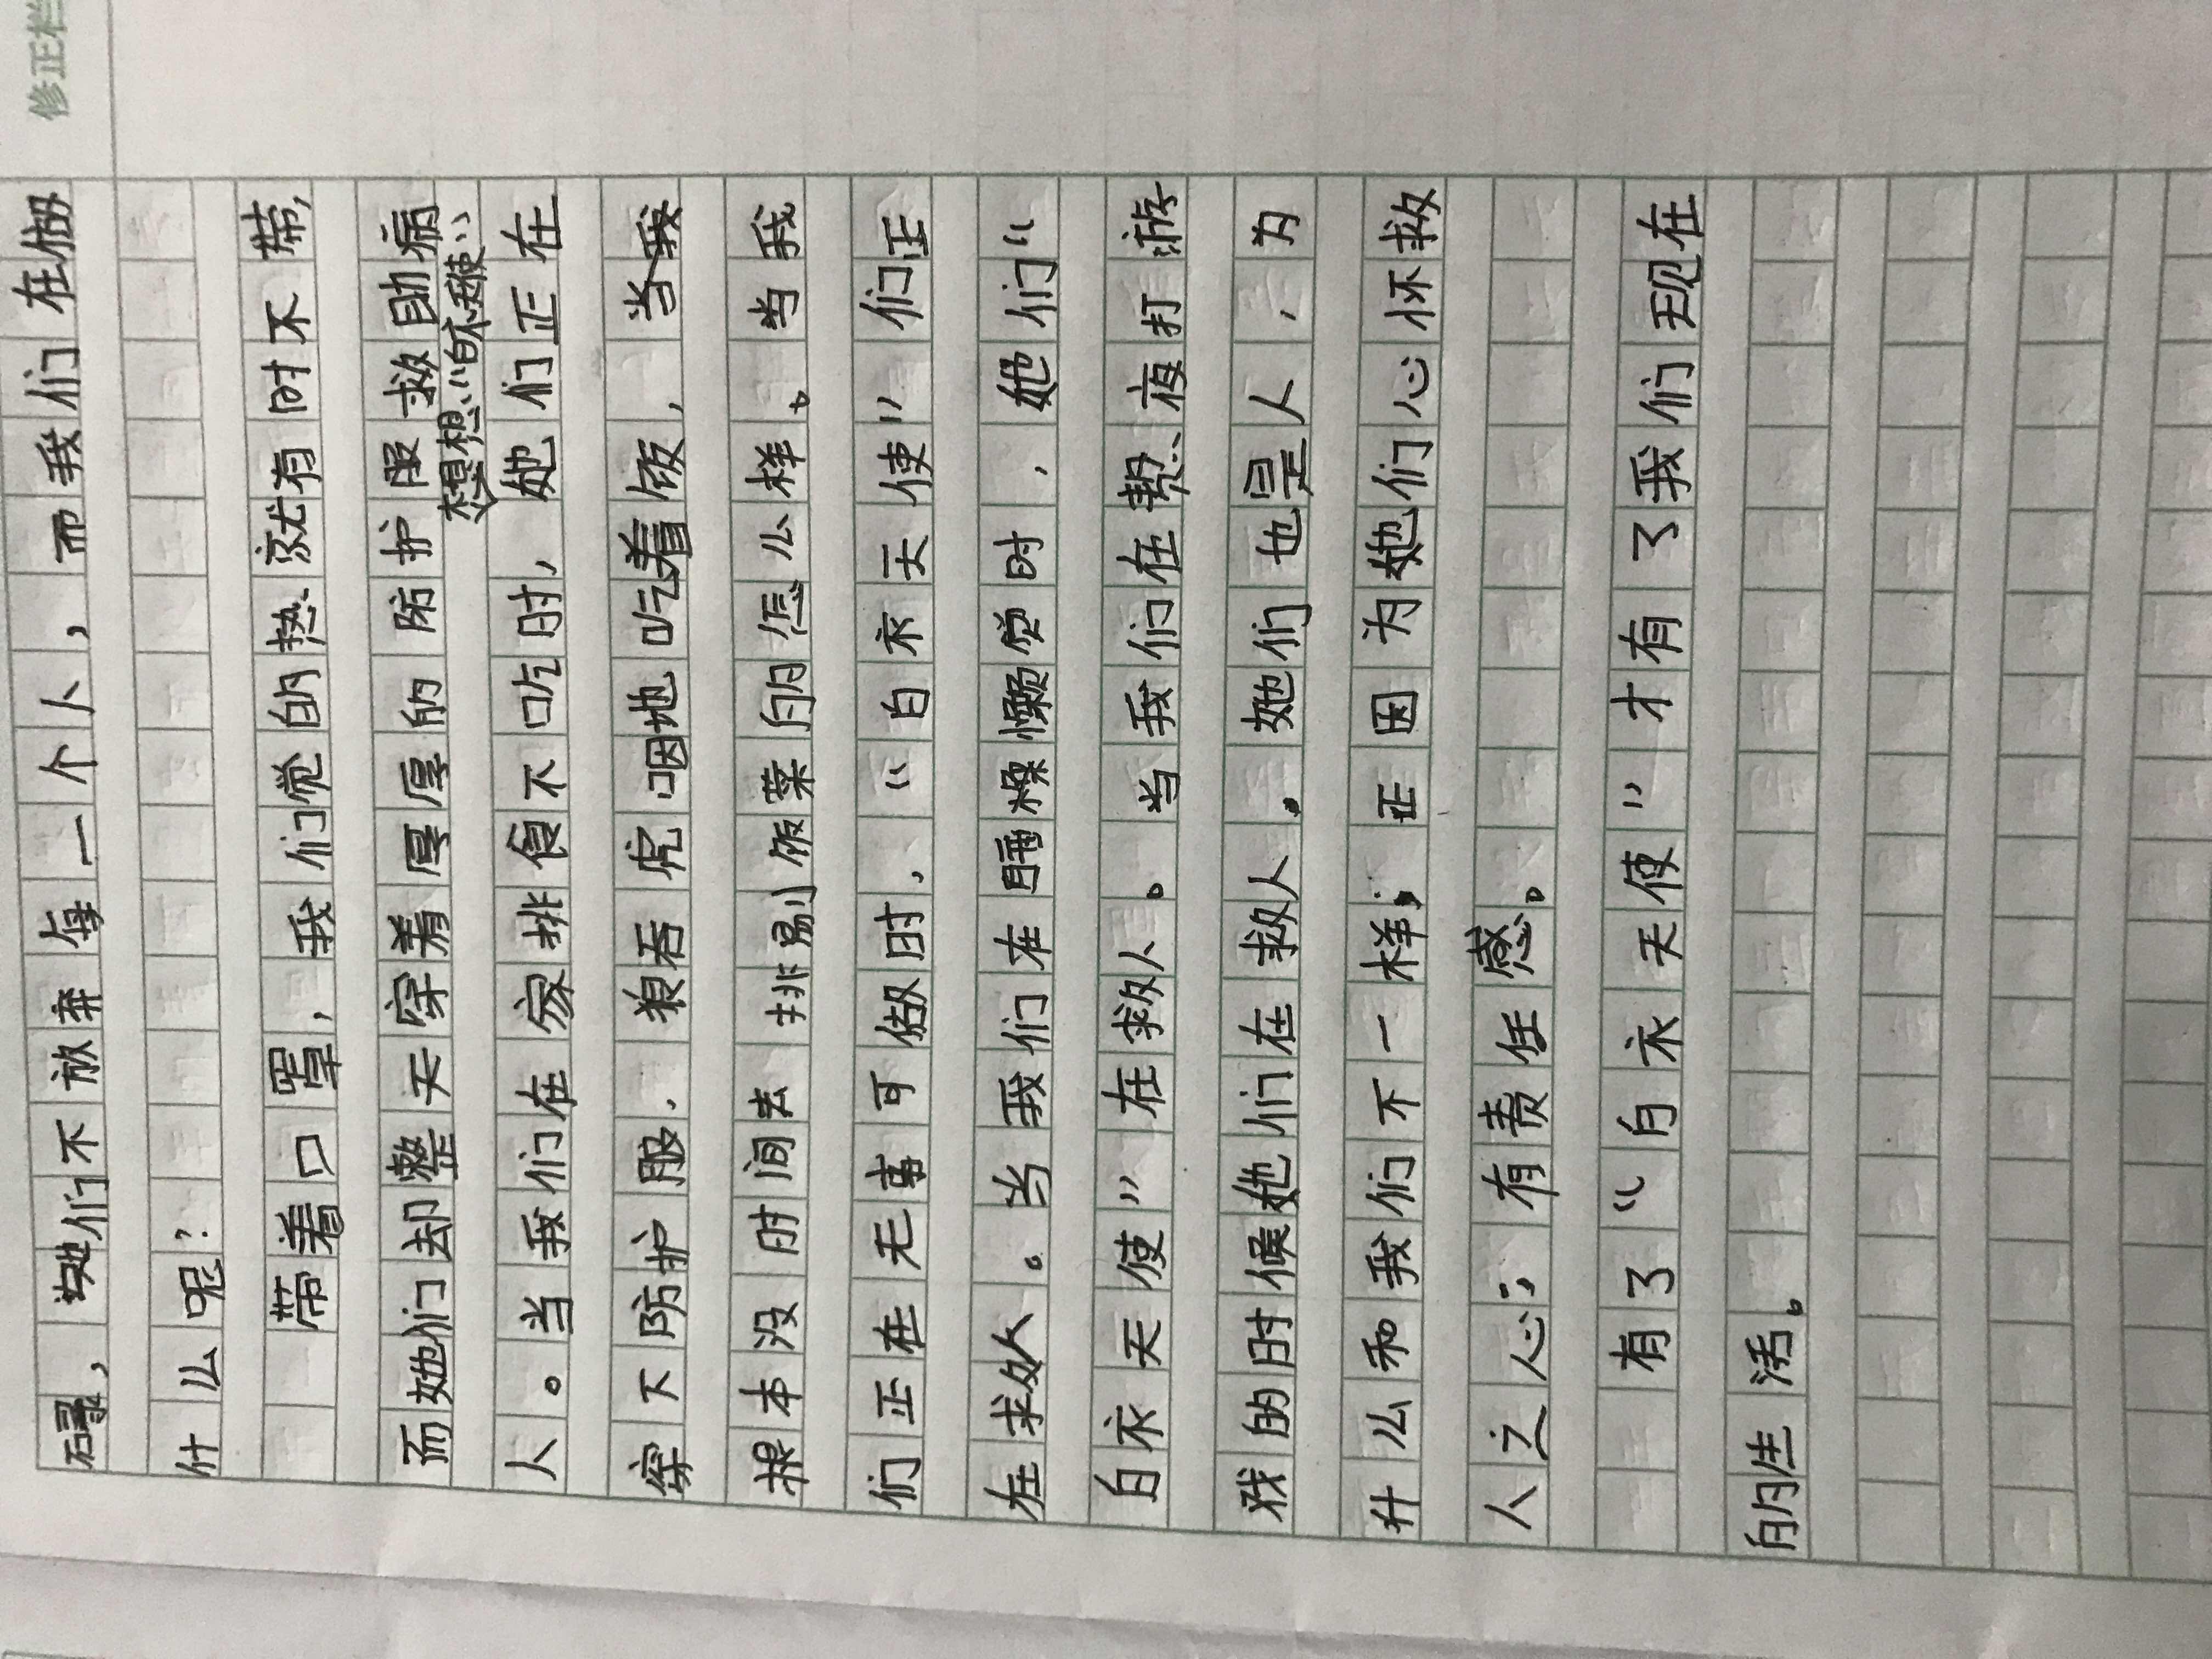 修正栏
碌，她们不放弃每一个人，而我们在做
什么呢？
带着口罩，我们觉的热就有时不带，
而她们却整天穿着厚厚的防护服救助病
想想“白衣天使”
人。当我们在家挑食不吃时，她们正在
穿下防护服，狼吞虎咽地吃着饭，当我
根本没时间去挑剔饭菜的怎么样。当我
们正在无事可做时，“白衣天使”们正
在救人。当我们在睡懒觉时，她们“
白衣天使”在救人。当我们在熬夜打游
戏的时候她们在救人。她们也是人，为
什么和我们不一样；正因为她们心怀救
人之心；有责任感。
有了“白衣天使”才有了我们现在
的生活。